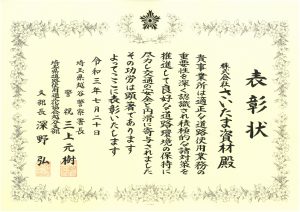 表彰状
株式会社さいたま資材殿
貴事業所は適正な道路使用業務の
重要性を深く認識され積極的な諸対策を
推進して良好な道路環境の保持に
尽力し交通の安全と円滑に寄与されました
その功労は顕著であります
よってここに表彰いたします
令和三年七月二十日
埼玉県越谷警察署長
警視 三上元樹
支部長 深野弘